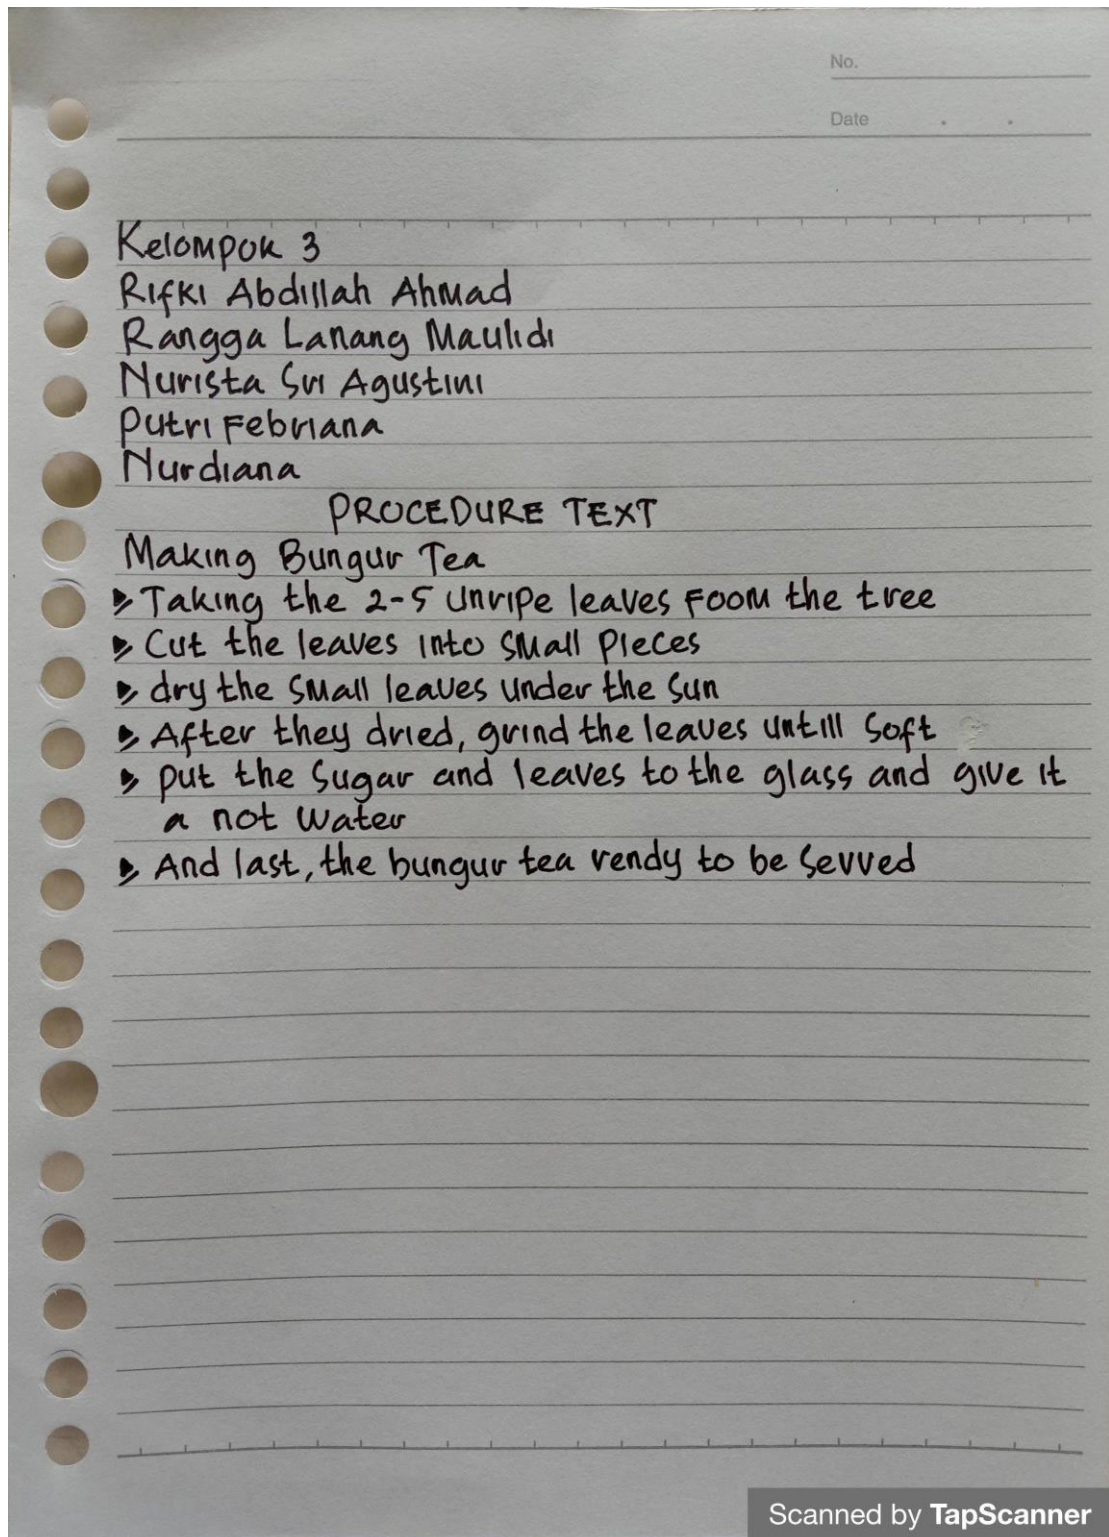 No.
Date
Kelompok 3
Rifki Abdillah Ahmad
Rangga Lanang Maulidi
Nurista Sri Agustini
Putri Febriana
Nurdiana
PROCEDURE TEXT
Making Bungur Tea
Taking the 2-5 unripe leaves foom the tree
Cut the leaves into small pieces
dry the small leaves under the sun
After they dried, grind the leaves untill soft
put the sugar and leaves to the glass and give it
a not water
And last, the bungur tea rendy to be served
Scanned by TapScanner